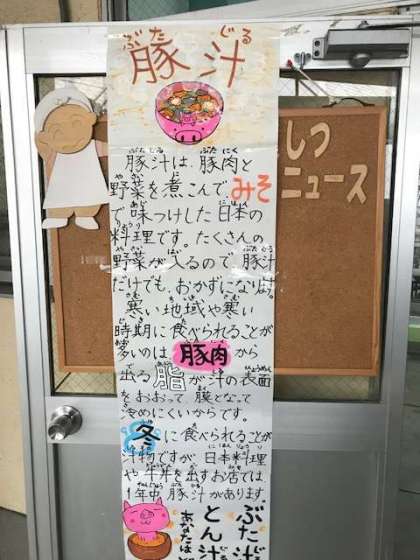 豚汁
豚汁は、豚肉と
野菜を煮こんでみそ
で味つけした日本の
料理です。たくさんの
野菜が入るので、豚汁
だけでも、おかずになります。
寒い地域や寒い
時期に食べられることが
多いのは、豚肉から
出る脂が汁の表面
をおおって、膜となって
冷めにくいからです。
冬に食べられることが
汁物ですが、日本料理
や牛丼を出すお店では
1年中、豚汁があります。
ぶた汁
とん汁
あなたは
しつ
ニュース